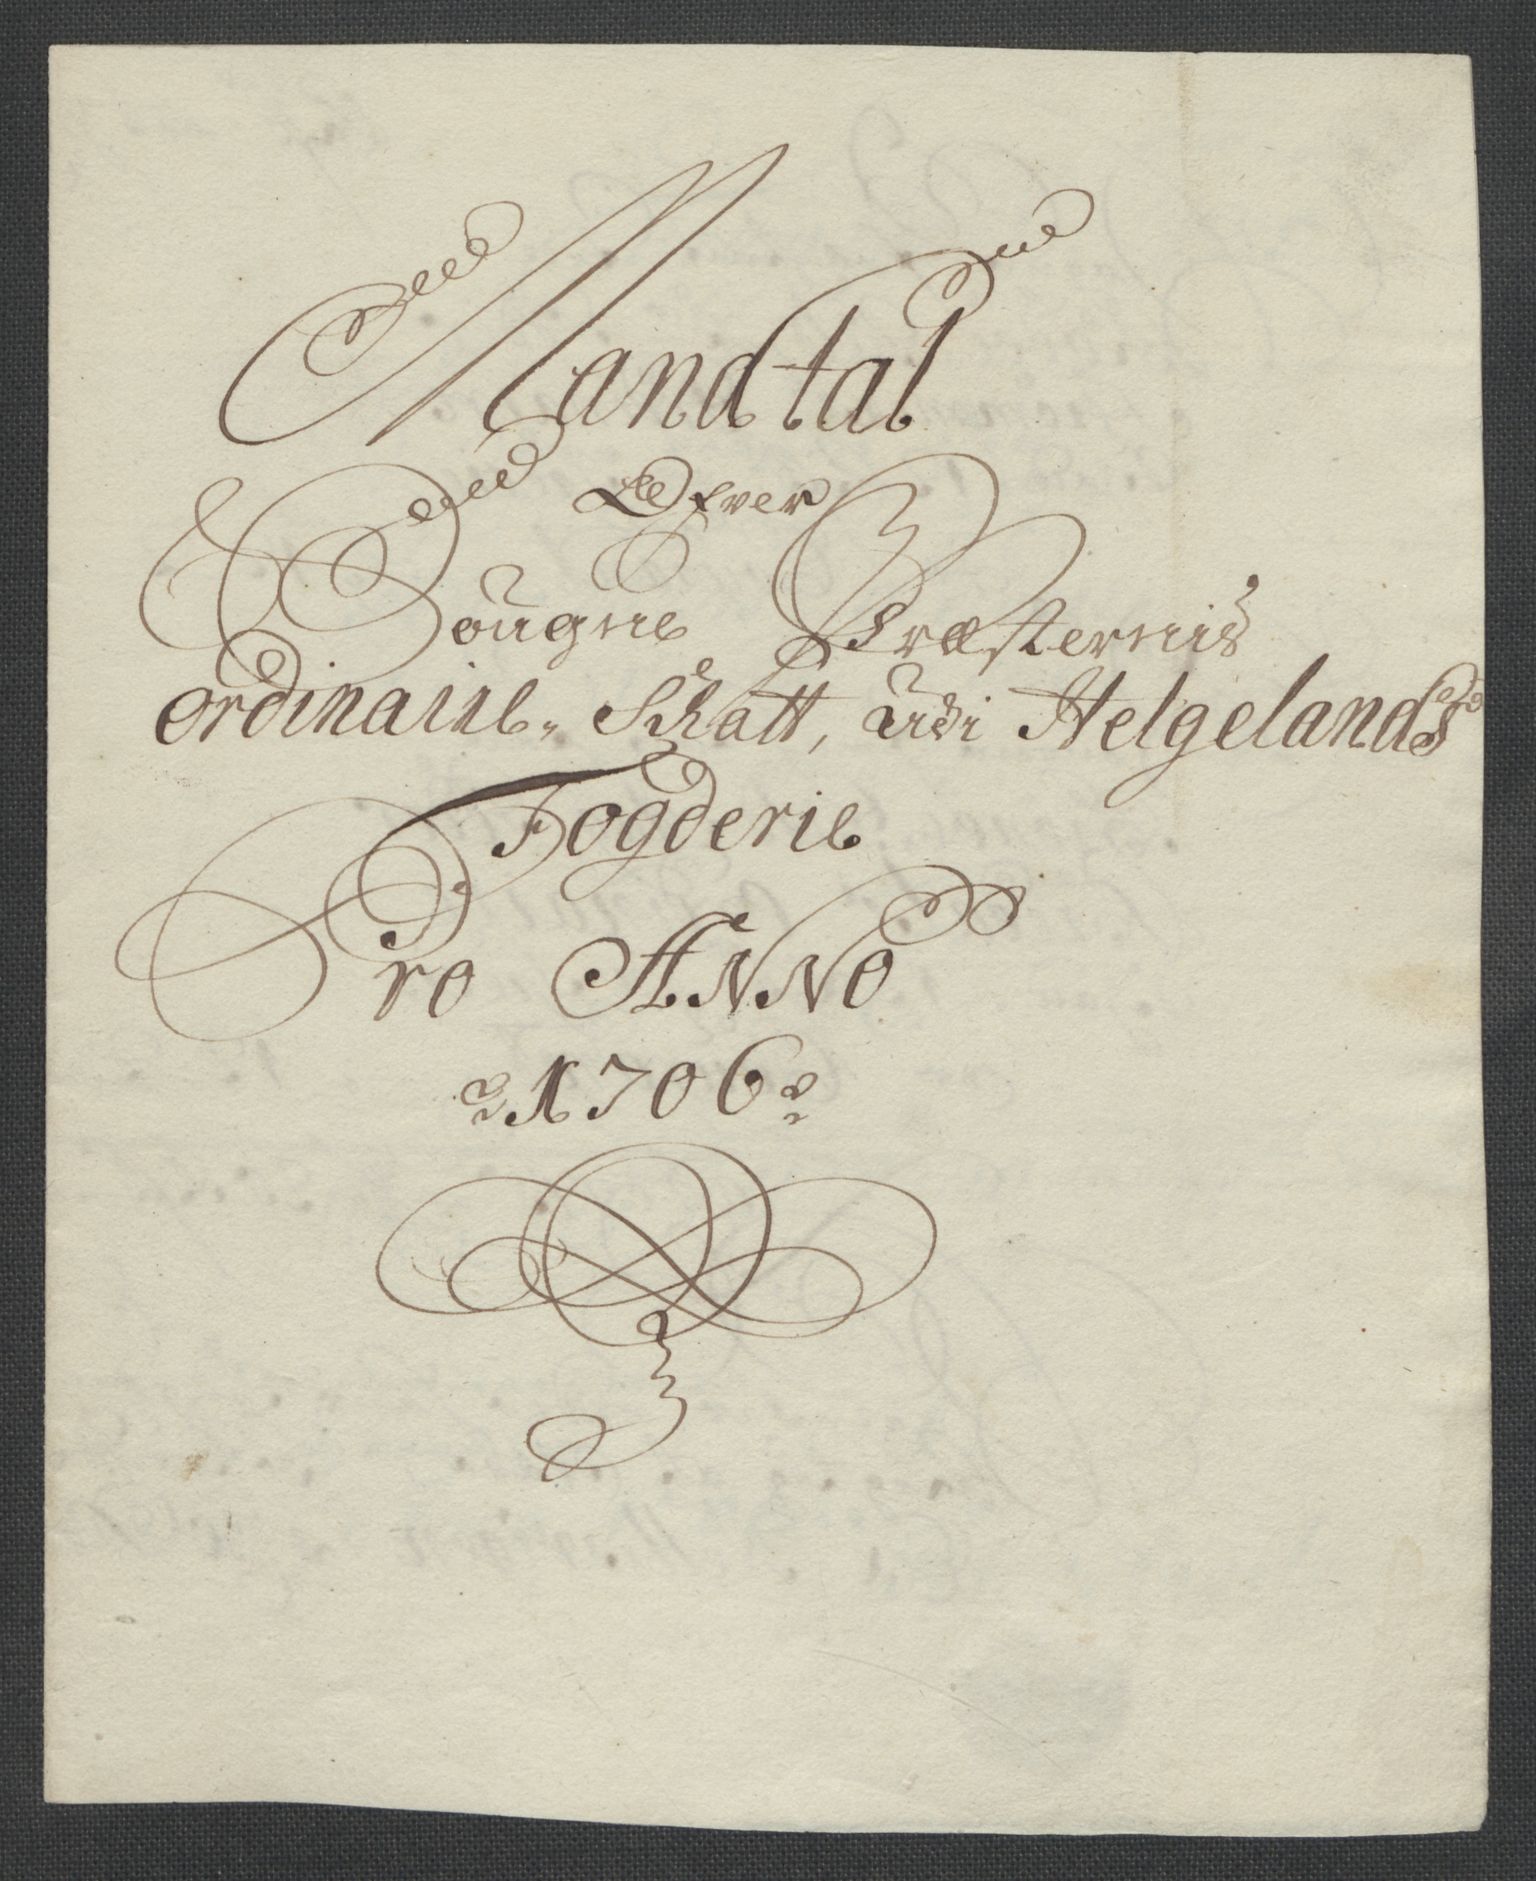 Mandtal
Ofver
Sougne Præsternis
ordinaire, Schatt, udi Helgelands
Fogderie
Pro ANNo
1706